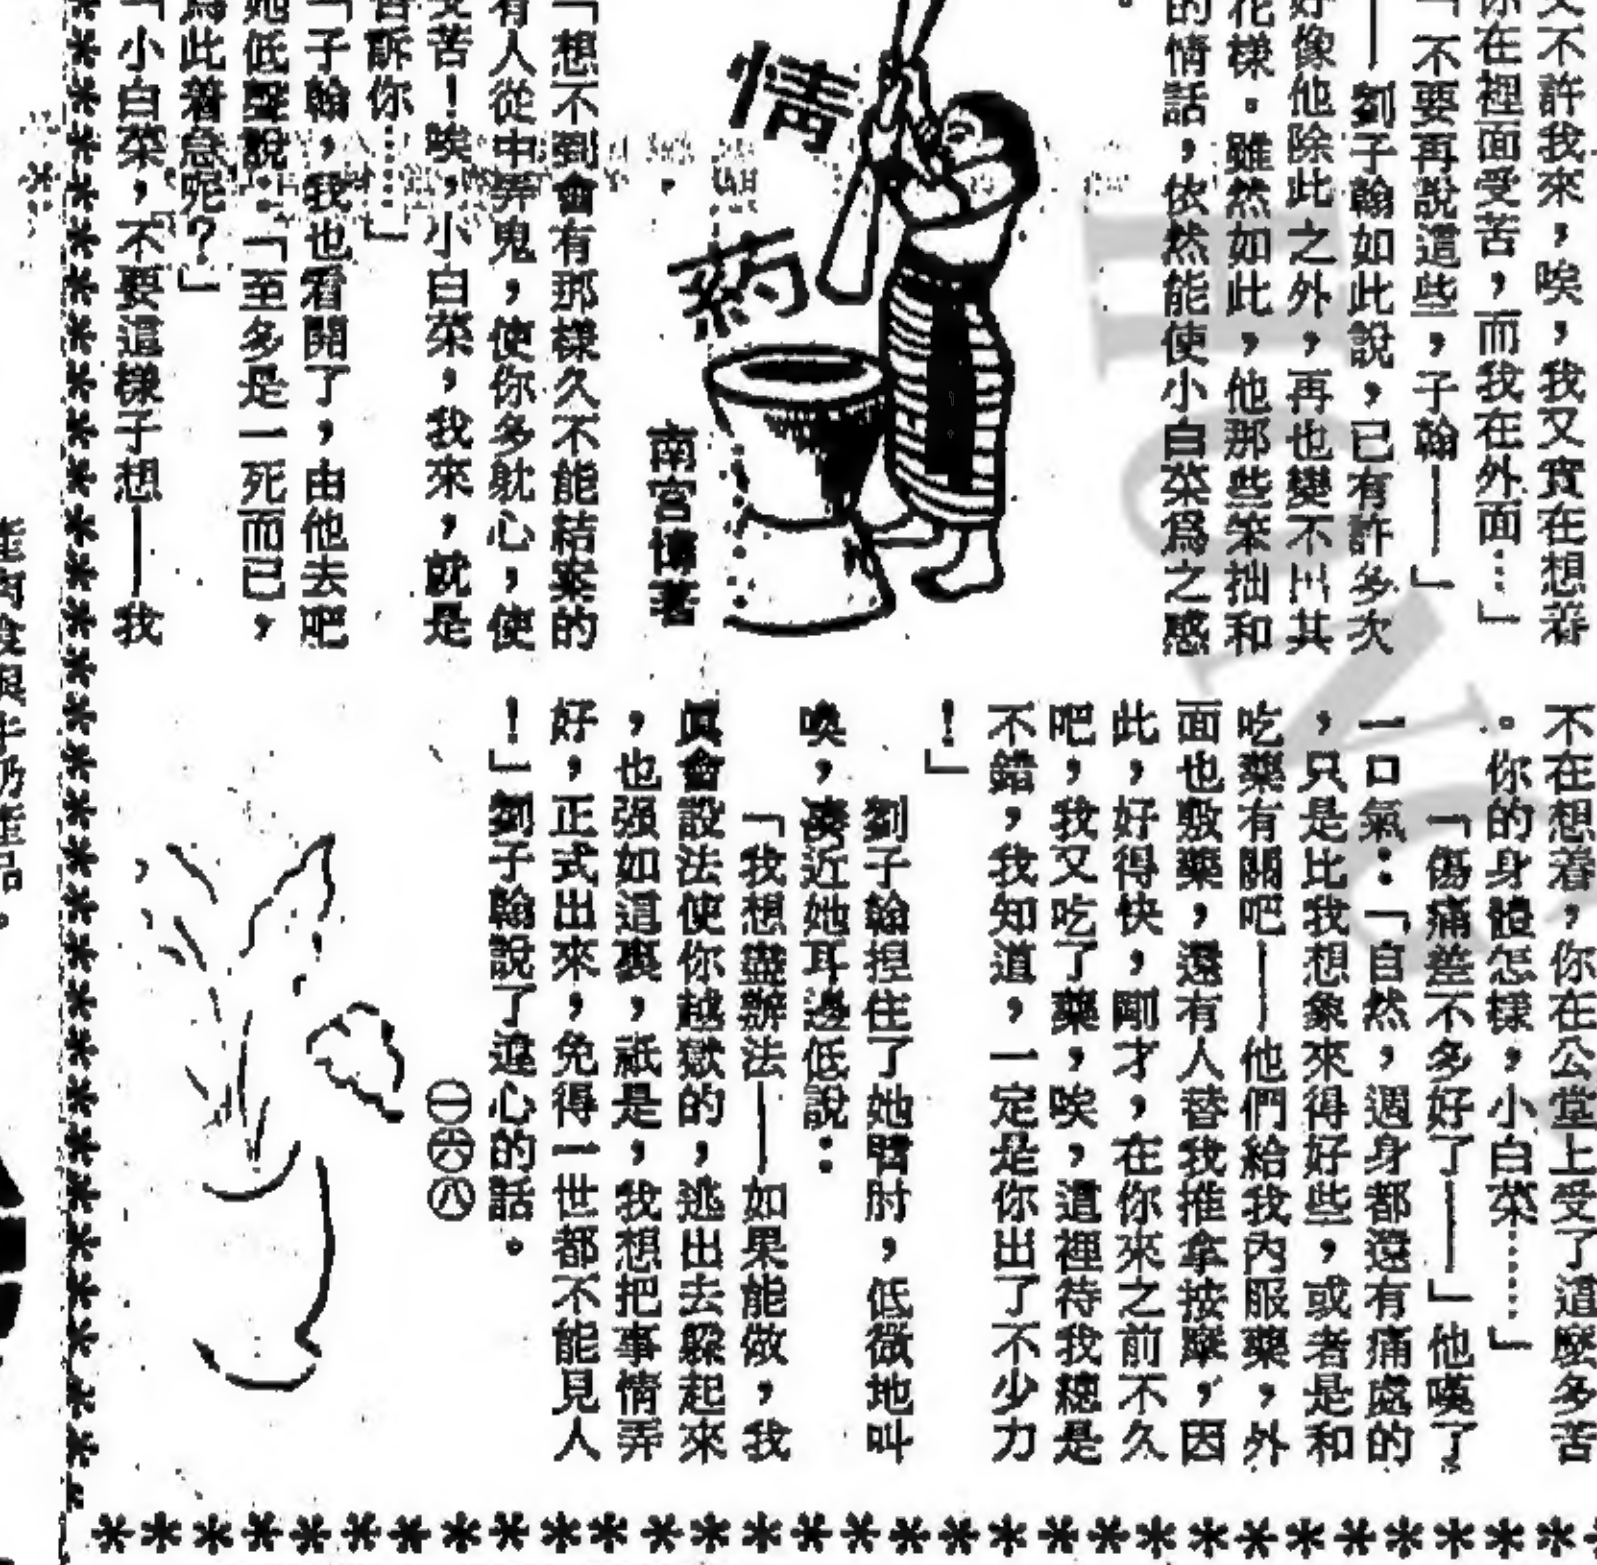 又不許我來，唉，我又實在想着
你在裡面受苦，而我在外面…」
「不要再說這些，子翰——」
——劉子翰如此說，已有許多次
好像他除此之外，再也變不出其
花樣。雖然如此，他那些笨拙和
的情話，依然能使小白菜爲之感
。
情
药
南宮博著
「想不到會有那樣久不能結案的
有人從中弄鬼，使你多躭心，使
受苦！唉，小白菜，我來，就是
告訴你……」
「子翰，我也看開了，由他去吧
她低聲說：「至多是一死而已，
爲此着急呢？」
「小白菜，不要這樣子想——我
不在想着，你在公堂上受了這麼多苦
。你的身體怎樣，小白菜……」
「傷痛差不多好了——」他嘆了
一口氣：「自然，週身都還有痛處的
，只是比我想象來得好些，或者是和
吃藥有關吧——他們給我內服藥，外
面也敷藥，還有人替我推拿按摩，因
此，好得快，剛才，在你來之前不久
吧，我又吃了藥，唉，這裡待我總是
不錯，我知道，一定是你出了不少力
！」
劉子翰捏住了她臂肘，低微地叫
喚，湊近她耳邊低說：
「我想盡辦法——如果能做，我
眞會設法使你越獄的，逃出去躱起來
，也强如這裏，祇是，我想把事情弄
好，正式出來，免得一世都不能見人
！」劉子翰說了違心的話。
㊀㊅㊇
HONG